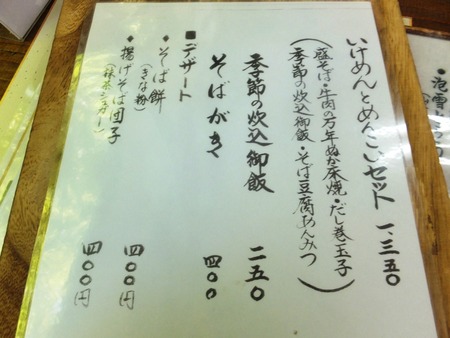 いけめんとめんこいセット 一、三五〇
(盛そば・牛肉の万年ぬか床焼・だし巻玉子
季節の炊込御飯・そば豆腐あんみつ)
季節の炊込御飯 二五〇
そばがき 四〇〇
■デザート
◆そば餅 四〇〇円
(きな粉)
◆揚げそば団子 四〇〇円
(抹茶シュガー)